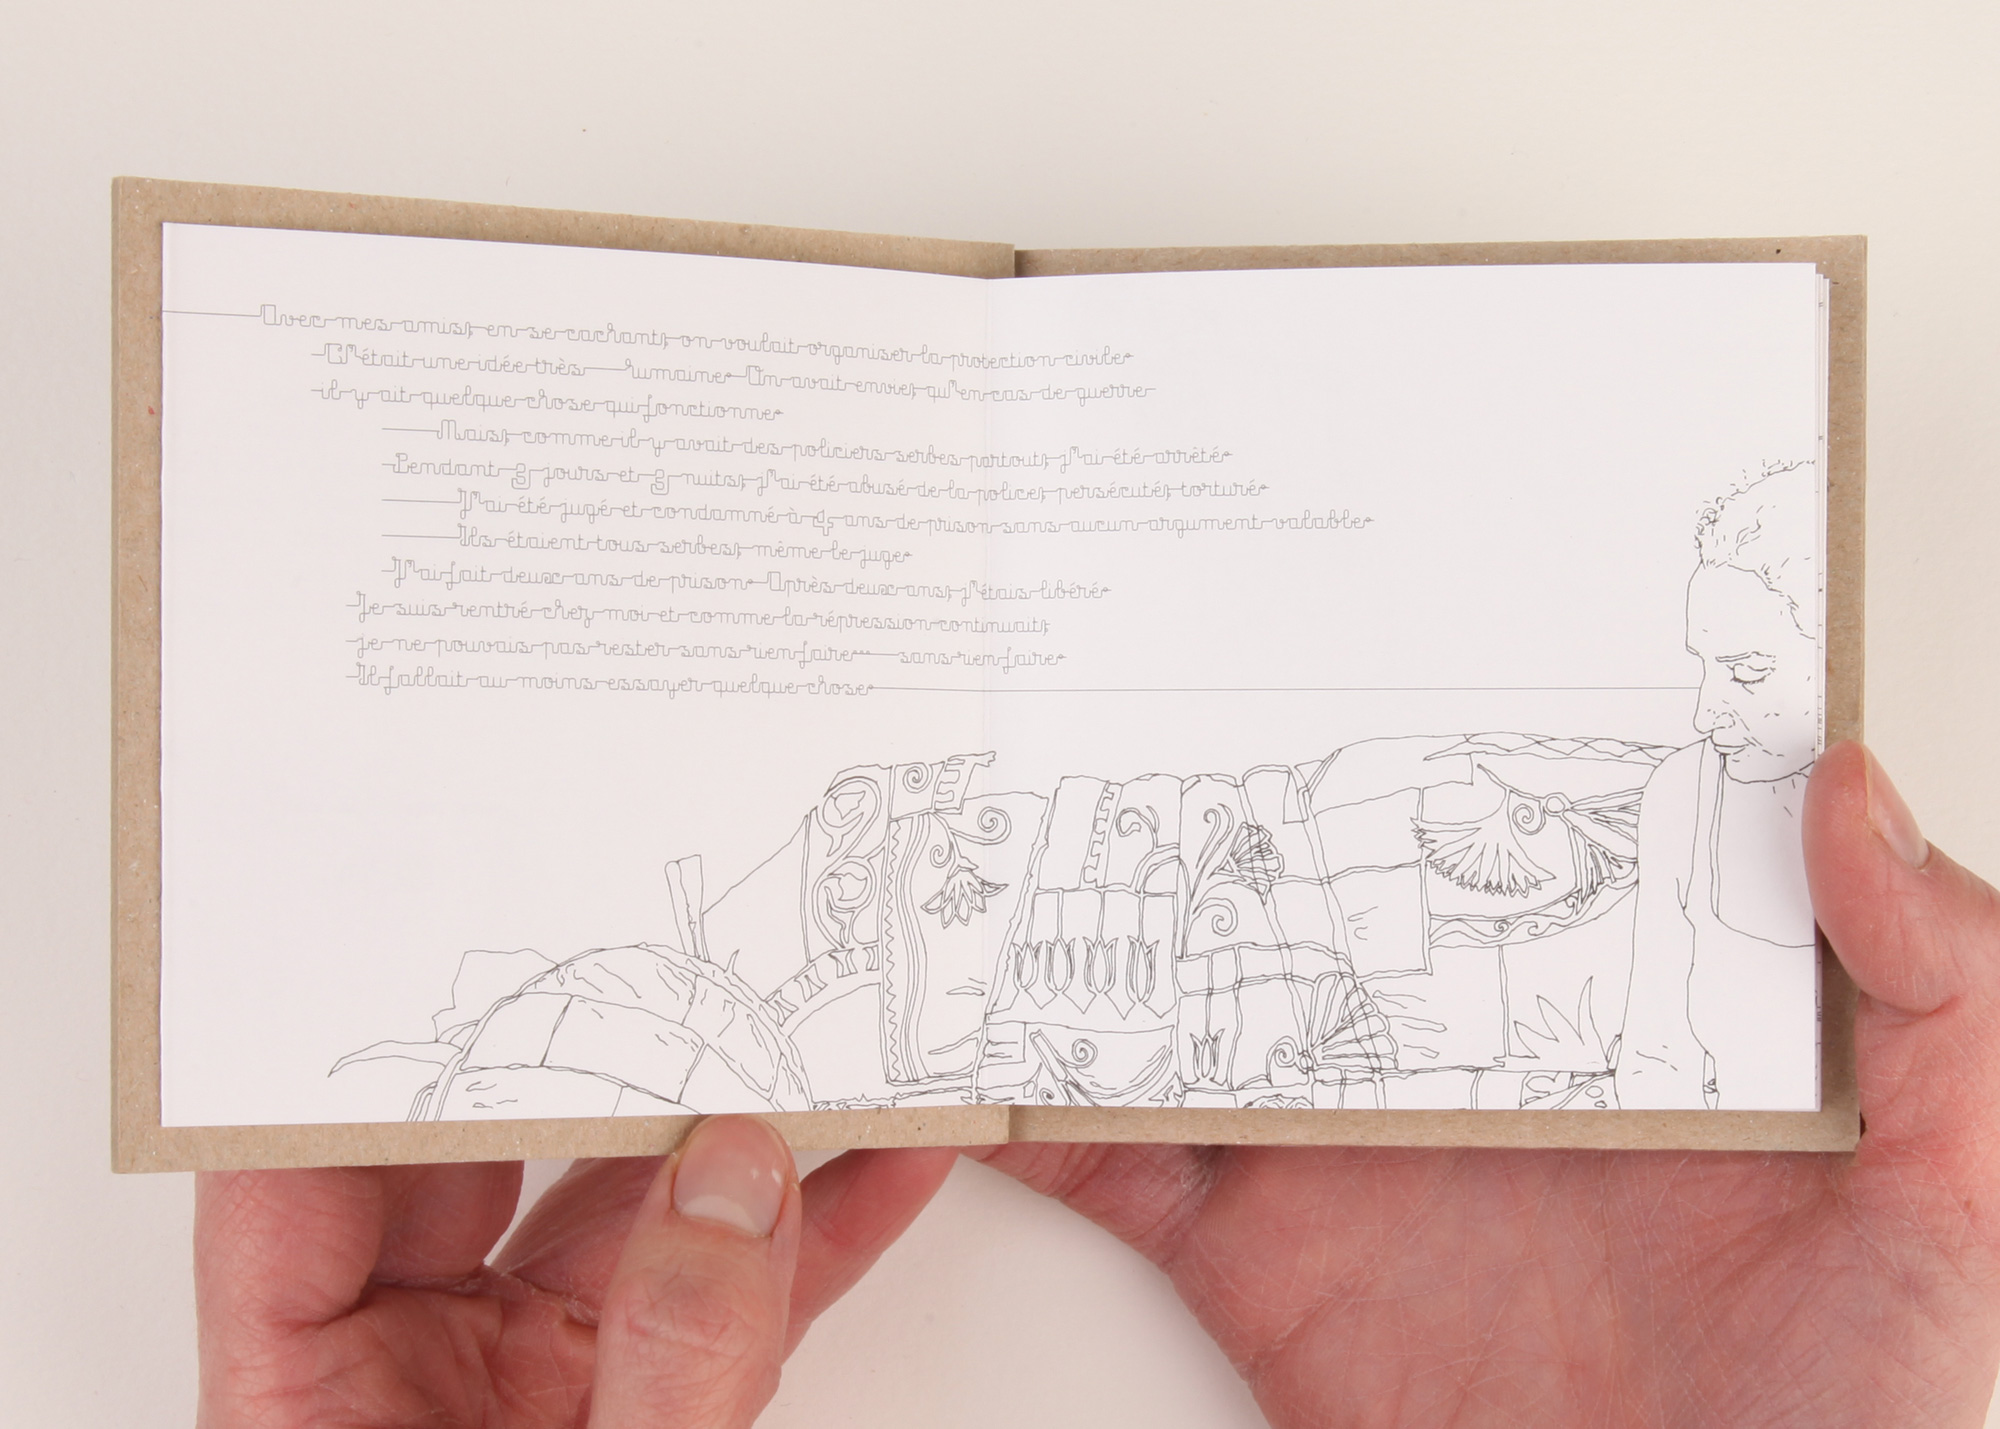 Avec mes amis, en se cachant, on voulait organiser la protection civile.
C'était une idée très humaine. On avait envie, qu'en cas de guerre
il y ait quelque chose qui fonctionne.
Mais, comme il y avait des policiers serbes partout, j'ai été arrêté.
Pendant 3 jours et 3 nuits, j'ai été abusé de la police, persécuté, torturé.
J'ai été jugé et condamné à 4 ans de prison sans aucun argument valable.
Ils étaient tous serbes, même le juge.
J'ai fait deux ans de prison. Après deux ans, j'étais libéré.
Je suis rentré chez moi et comme la répression continuait,
je ne pouvais pas rester sans rien faire... sans rien faire.
Il fallait au moins essayer quelque chose.